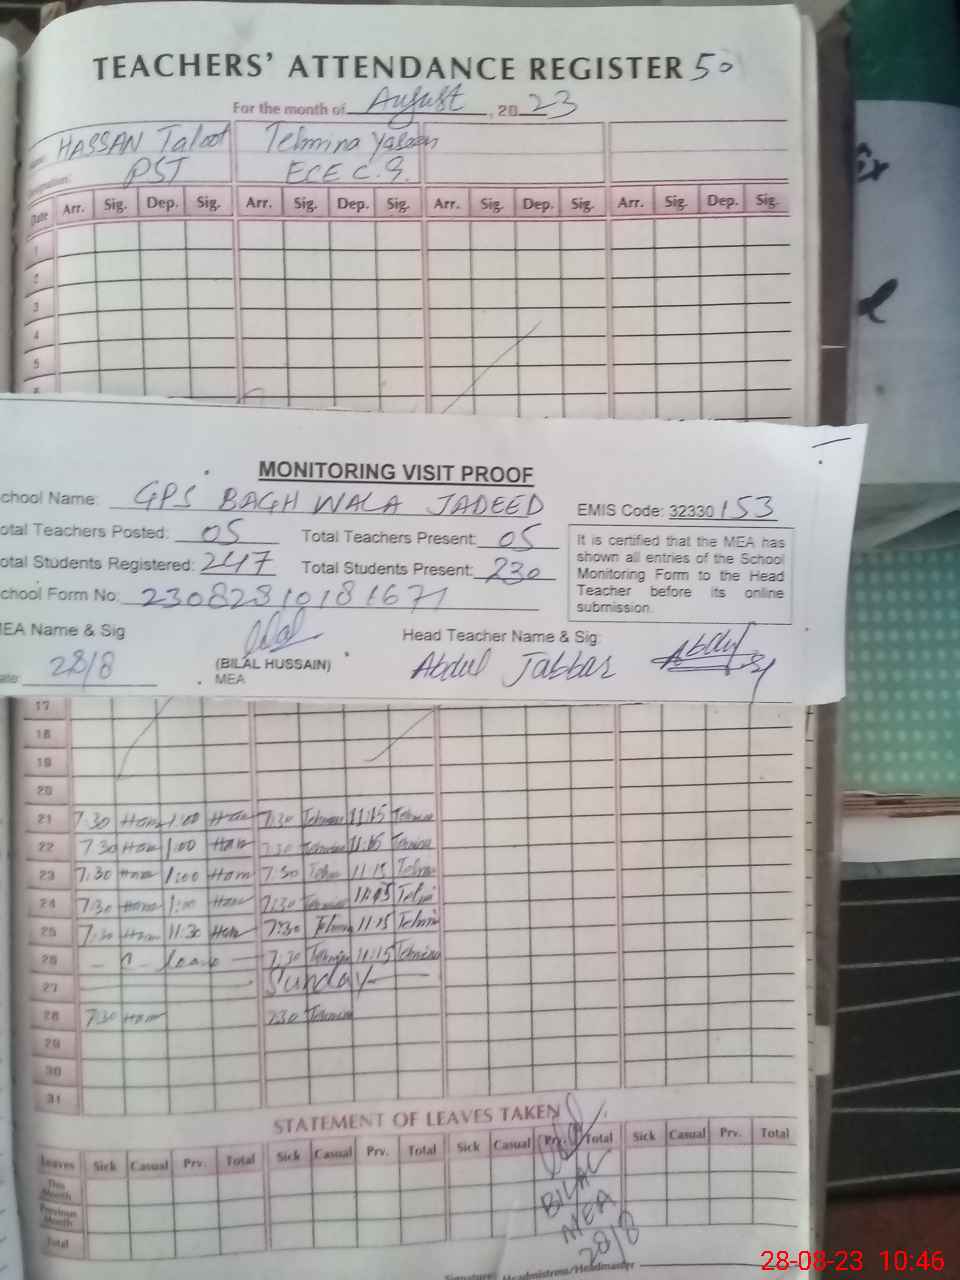 TEACHERS' ATTENDANCE REGISTER 50
For the month of August, 2023
HASSAN Talat Tehmina Yaseen
PST ECE C.G.
Date Arr. Sig. Dep. Sig. Arr. Sig. Dep. Sig. Arr. Sig. Dep. Sig. Arr. Sig. Dep. Sig.
1
2
3
4
5
MONITORING VISIT PROOF
chool Name: GPS BAGH WALA JADEED EMIS Code: 32330153
otal Teachers Posted: 05 Total Teachers Present: 05
otal Students Registered: 247 Total Students Present: 230
chool Form No: 230828101816 71
It is certified that the MEA has
shown all entries of the School
Monitoring Form to the Head
Teacher before its online
submission.
EA Name & Sig Head Teacher Name & Sig:
ate: 28/8 (BILAL HUSSAIN) Abdul Jabbar
MEA
17
18
19
20
21 7:30 Ham 1:00 Ham 7:30 Tehmina 11:15 Tehmina
22 7:30 Ham 1:00 Ham 7:30 Tehmina 11:15 Tehmina
23 7:30 Ham 1:00 Ham 7:30 Tehm 11:15 Tehmi
24 7:30 Ham 1:00 Ham 7:30 Tehmina 11:15 Tehmi
25 7:30 Ham 11:30 Ham 7:30 Tehmi 11:15 Tehmin
26 leave 7:30 Tehmina 11:15 Tehmina
27 Sunday
28 7:30 Ham 7:30 Tehmina
29
30
31
STATEMENT OF LEAVES TAKEN
Leaves Sick Casual Prv. Total Sick Casual Prv. Total Sick Casual Prv. Total Sick Casual Prv. Total
This Month
Previous Month
Total
BILAL
MEA
28/8
Signature: Headmistress/Headmaster
28-08-23 10:46